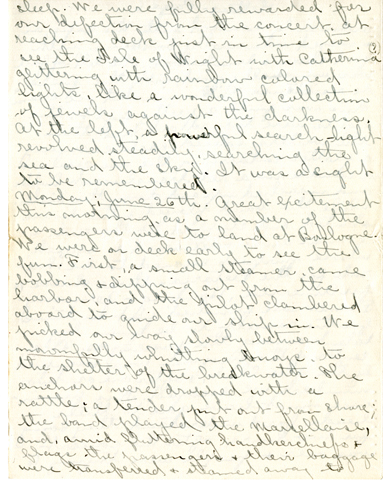 sleep. We were fully rewarded for
our defection from the concert, at
reaching deck just in time to
see the Isle of Wight with Catherina
glittering with rainbow colored
lights, like a wonderful collection
of jewels against the darkness.
At the left, a powerful search-light
revolved steadily, searching the
sea and the sky. It was a sight
to be remembered.
Monday, June 26th. Great excitement
this morning, as a number of the
passengers were to land at Bollogne.
We were on deck early to see the
fun. First, a small steamer came
bobbing & dipping out from the
harbor, and the pilot clambered
aboard to guide our ship in. We
picked our way slowly between
mournfully whistling buoys to
the shelter of the breakwater. The
anchors were dropped with a
rattle; a tender put out from shore;
the band played the Marsellaise,
and, amid fluttering handkerchiefs &
flags the passengers & their baggage
were transferred & steamed away to